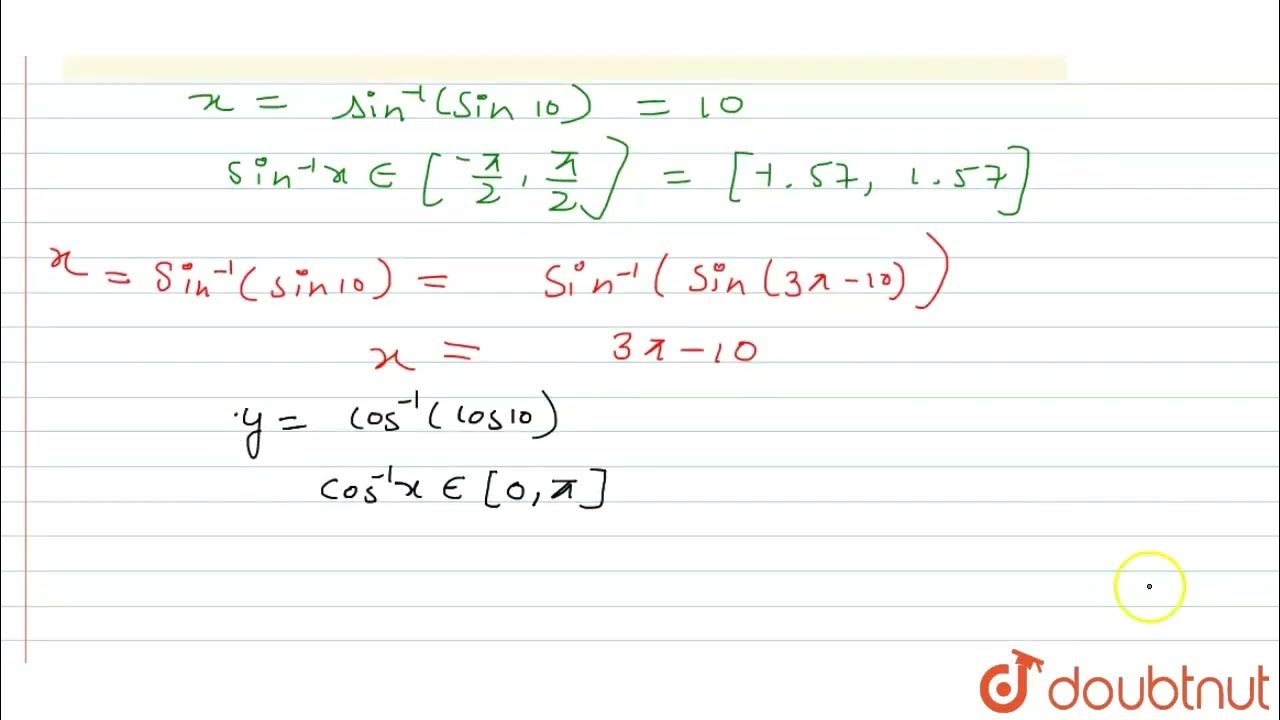 x = sin⁻¹(sin 10) = 10
sin⁻¹x ∈ [-π/2, π/2] = [-1.57, 1.57]
x = sin⁻¹(sin 10) = sin⁻¹(sin(3π-10))
x = 3π-10
y = cos⁻¹(cos 10)
cos⁻¹x ∈ [0, π]
doubtnut